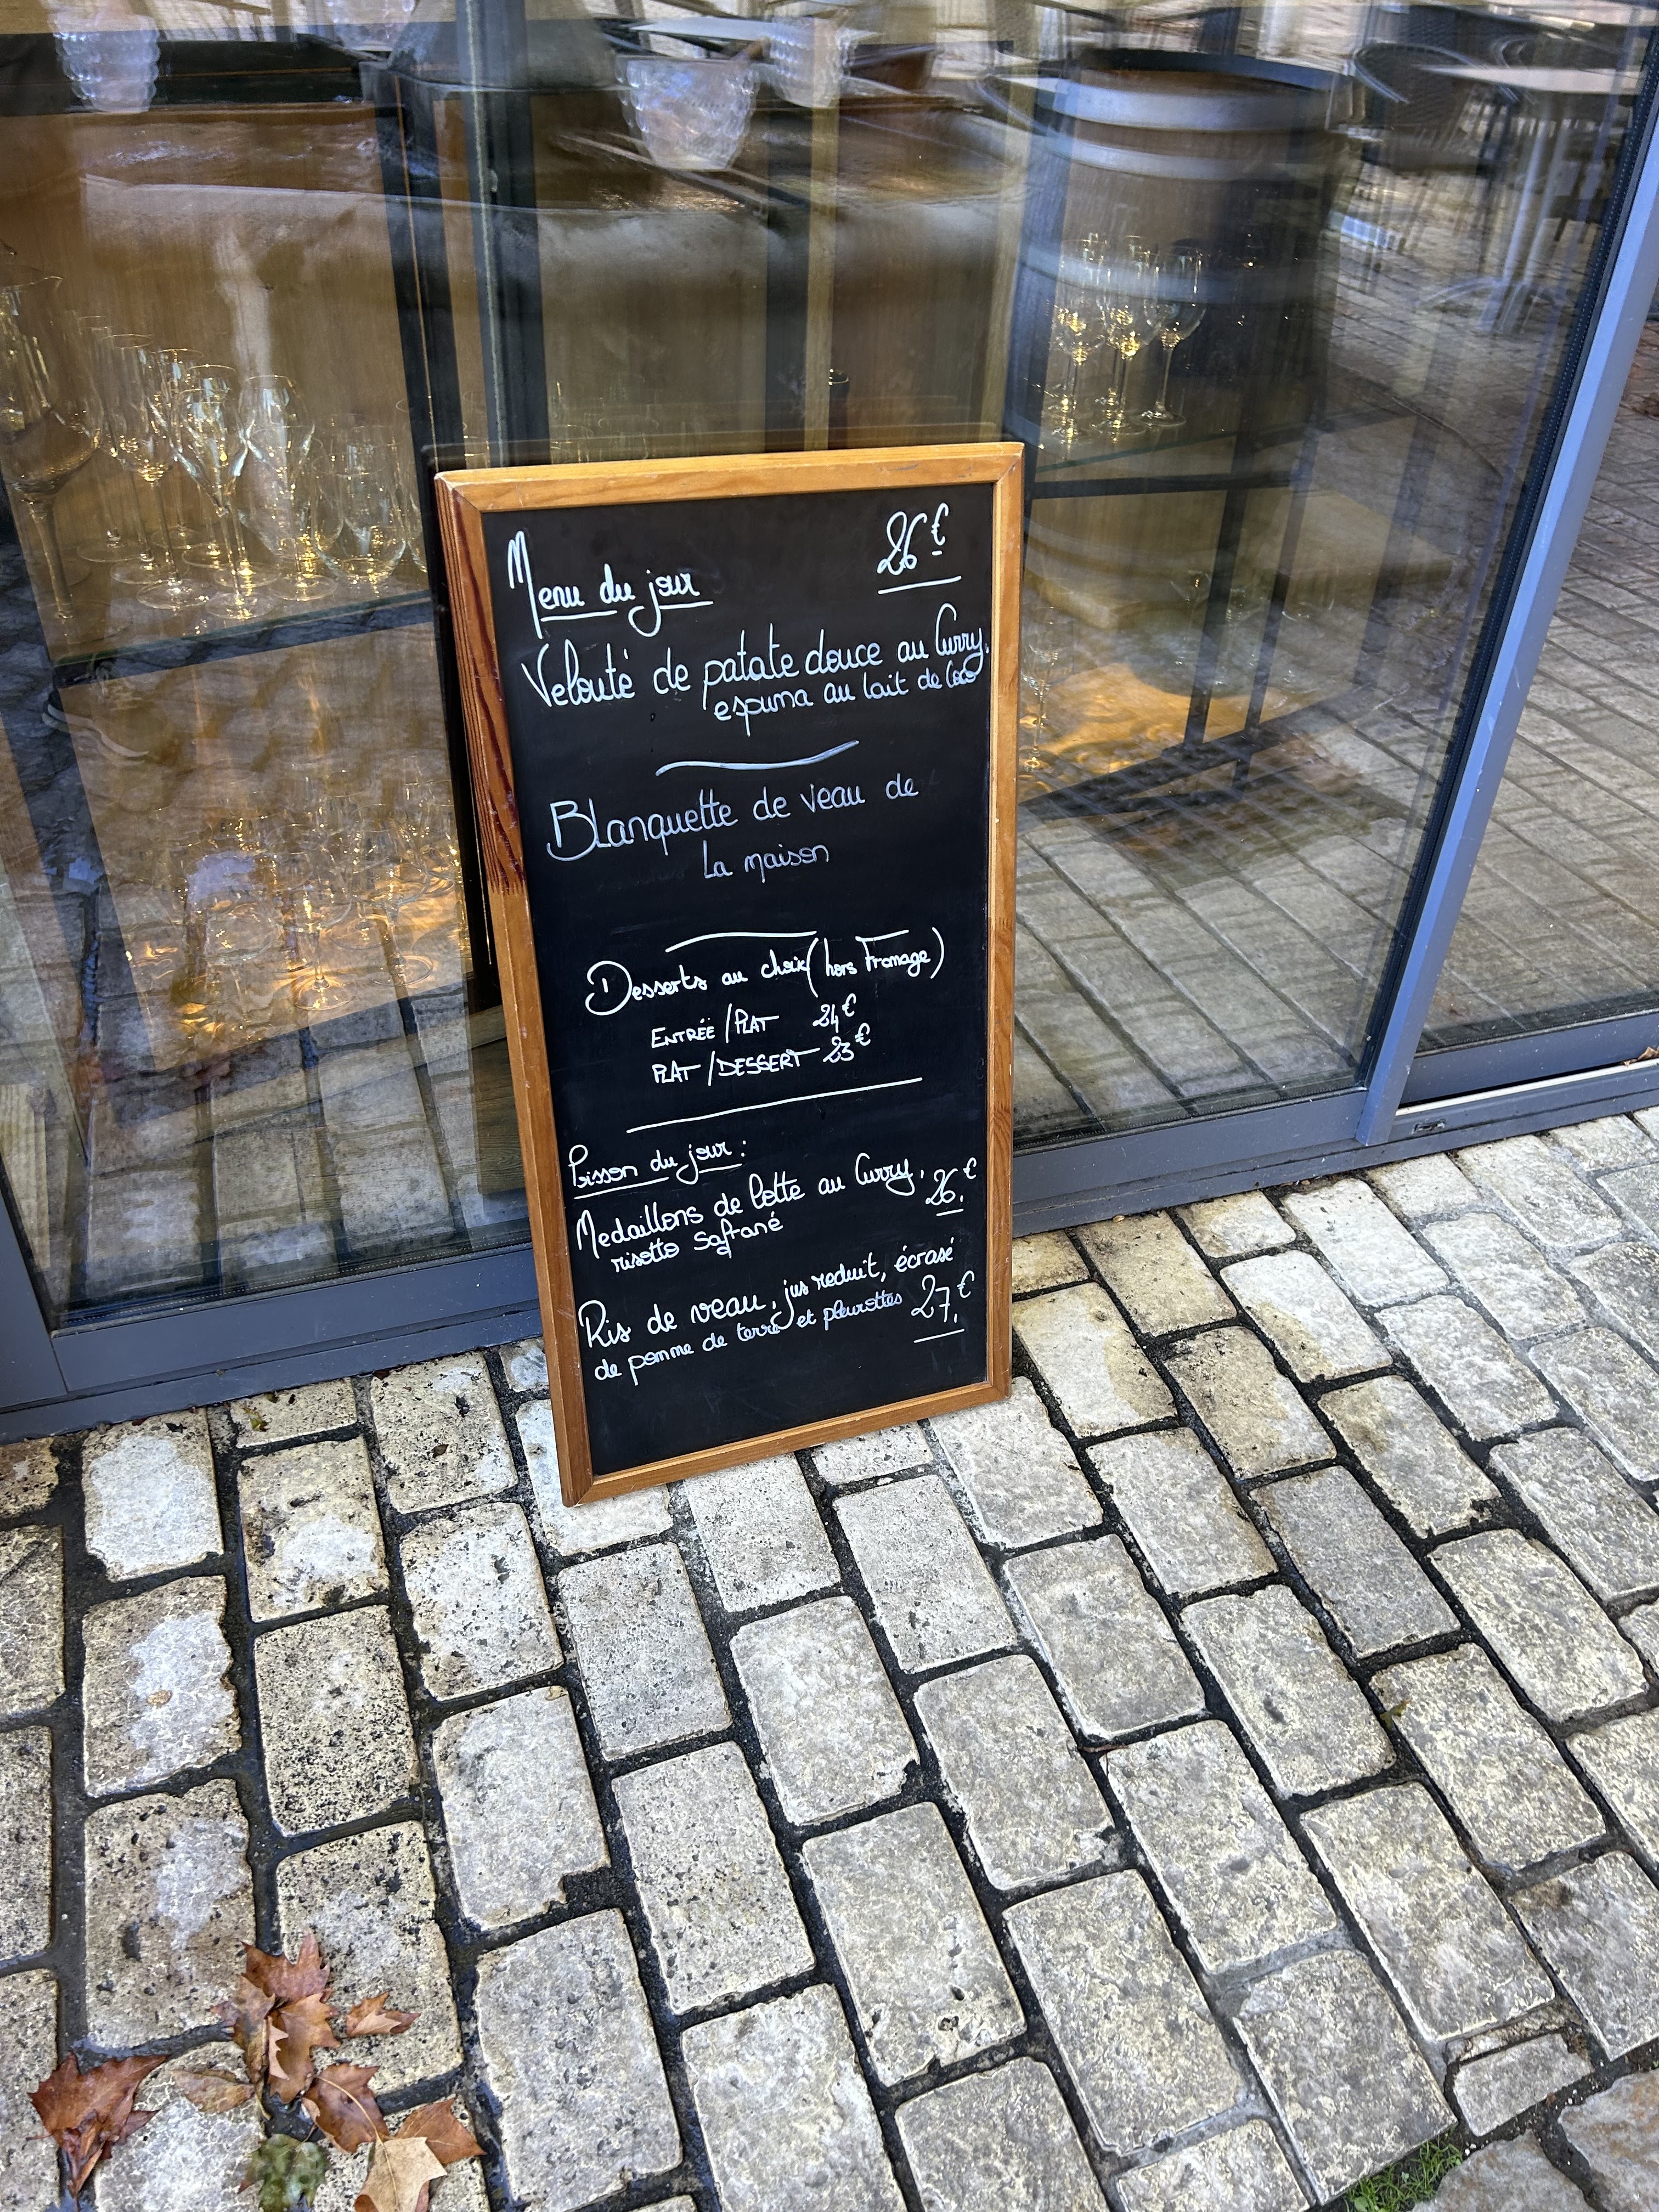 Menu du jour 26€
Velouté de patate douce au Curry,
espuma au lait de coco
Blanquette de veau de
la maison
Desserts au choix (hors Fromage)
ENTRÉE / PLAT 24€
PLAT / DESSERT 23€
Poisson du jour :
Medaillons de lotte au Curry, 26.€
risotto Safrané
Ris de veau, jus reduit, écrasé
de pomme de terre et pleurottes 27.€